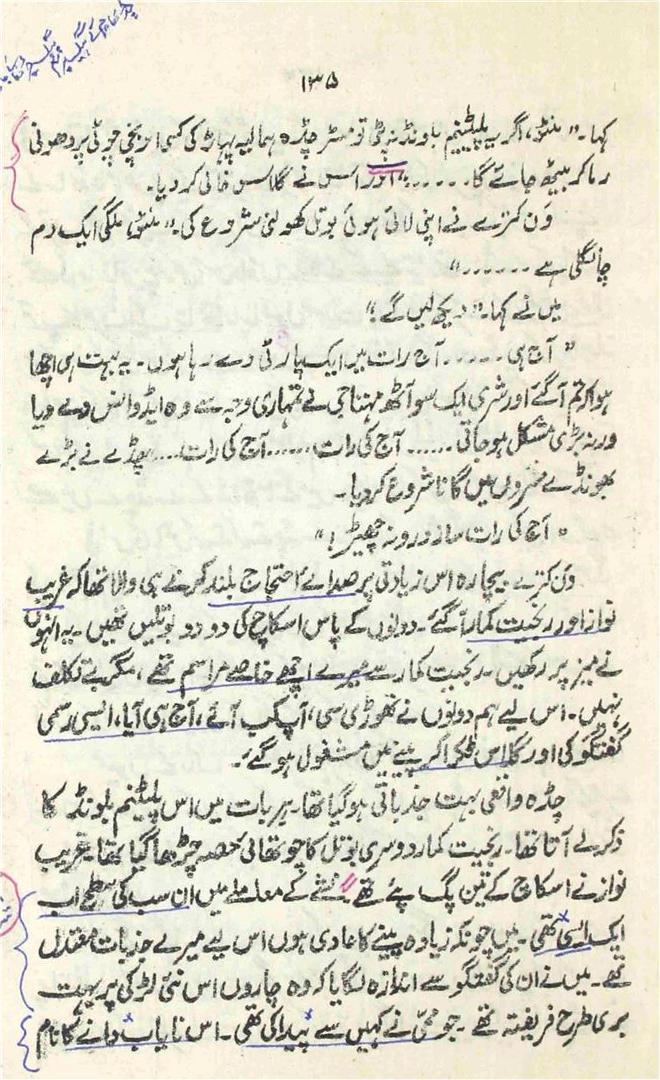 ۱۳۵
کہا۔ "منٹو، اگر یہ پلیٹینم بلونڈ نہ پٹی تو مسٹر چڈہ ہمالیہ پہاڑ کی کسی اونچی چوٹی پر دھونی
رما کر بیٹھ جائے گا۔۔۔۔۔۔" اور اس نے گلاس خالی کر دیا۔
ون کترے نے اپنی لائی ہوئی بوتل کھولنی شروع کی۔ "منٹو، ملگی ایک دم
چانگلی ہے ۔۔۔۔۔۔"
میں نے کہا۔ "دیکھ لیں گے!"
"آج ہی ۔۔۔۔۔ آج رات میں ایک پارٹی دے رہا ہوں۔ یہ بہت ہی اچھا
ہوا کہ تم آگئے اور شری ایک سو آٹھ مہتا جی نے تمہاری وجہ سے وہ ایڈوانس دے دیا
ورنہ بڑی مشکل ہو جاتی ۔۔۔۔۔۔ آج کی رات ۔۔۔۔۔۔ آج کی رات ۔۔۔۔ چڈے نے بڑے
بھونڈے سُروں میں گانا شروع کر دیا۔
"آج کی رات سازِ درد نہ چھیڑ!"
ون کترے بیچارہ اس زیادتی پر صدائے احتجاج بلند کرنے ہی والا تھا کہ غریب
نواز اور رنجیت کمار آگئے۔ دونوں کے پاس اسکاچ کی دو دو بوتلیں تھیں۔ یہ انہوں
نے میز پر رکھیں۔ رنجیت کمار سے میرے اچھے خاصے مراسم تھے، مگر بے تکلف
نہیں۔ اس لیے ہم دونوں نے تھوڑی سی، آپ کب آئے، آج ہی آیا، ایسی رسمی
گفتگو کی اور گلاس ٹکرا کر پینے میں مشغول ہو گئے۔
چڈہ واقعی بہت جذباتی ہو گیا تھا۔ ہر بات میں اس پلیٹنم بلونڈ کا
ذکر لے آتا تھا۔ رنجیت کمار دوسری بوتل کا چوتھائی حصہ چڑھا گیا تھا۔ غریب
نواز نے اسکاچ کے تین پگ پئے تھے۔ نشے کے معاملے میں ان سب کی سطح اب
ایک ایسی تھی۔ میں چونکہ زیادہ پینے کا عادی ہوں اس لیے میرے جذبات معتدل
تھے۔ میں نے ان کی گفتگو سے اندازہ لگایا کہ وہ چاروں اس نئی لڑکی پر بہت
بری طرح فریفتہ تھے۔ جو ممی نے کہیں سے پیدا کی تھی۔ اس نایاب دانے کا نام